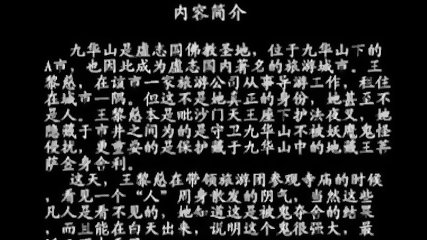 内容简介
九华山是虚志国佛教圣地，位于九华山下的
A市，也因此成为虚志国内著名的旅游城市。王
黎慈，在该市一家旅游公司从事导游工作，租住
在城市一隅。但这不是她真正的身份，她甚至不
是人。王黎慈本是毗沙门天王座下护法夜叉，她
隐藏于市井之间为的是守卫九华山不被妖魔鬼怪
侵扰，更重要的是保护藏于九华山中的地藏王菩
萨金身舍利。
这天，王黎慈在带领旅游团参观寺庙的时候
，看见一个“人”周身散发的阴气，当然这些
凡人是看不见的，她知道这是被鬼夺舍的结果
，而且能在白天出来，说明这个鬼很强大，最